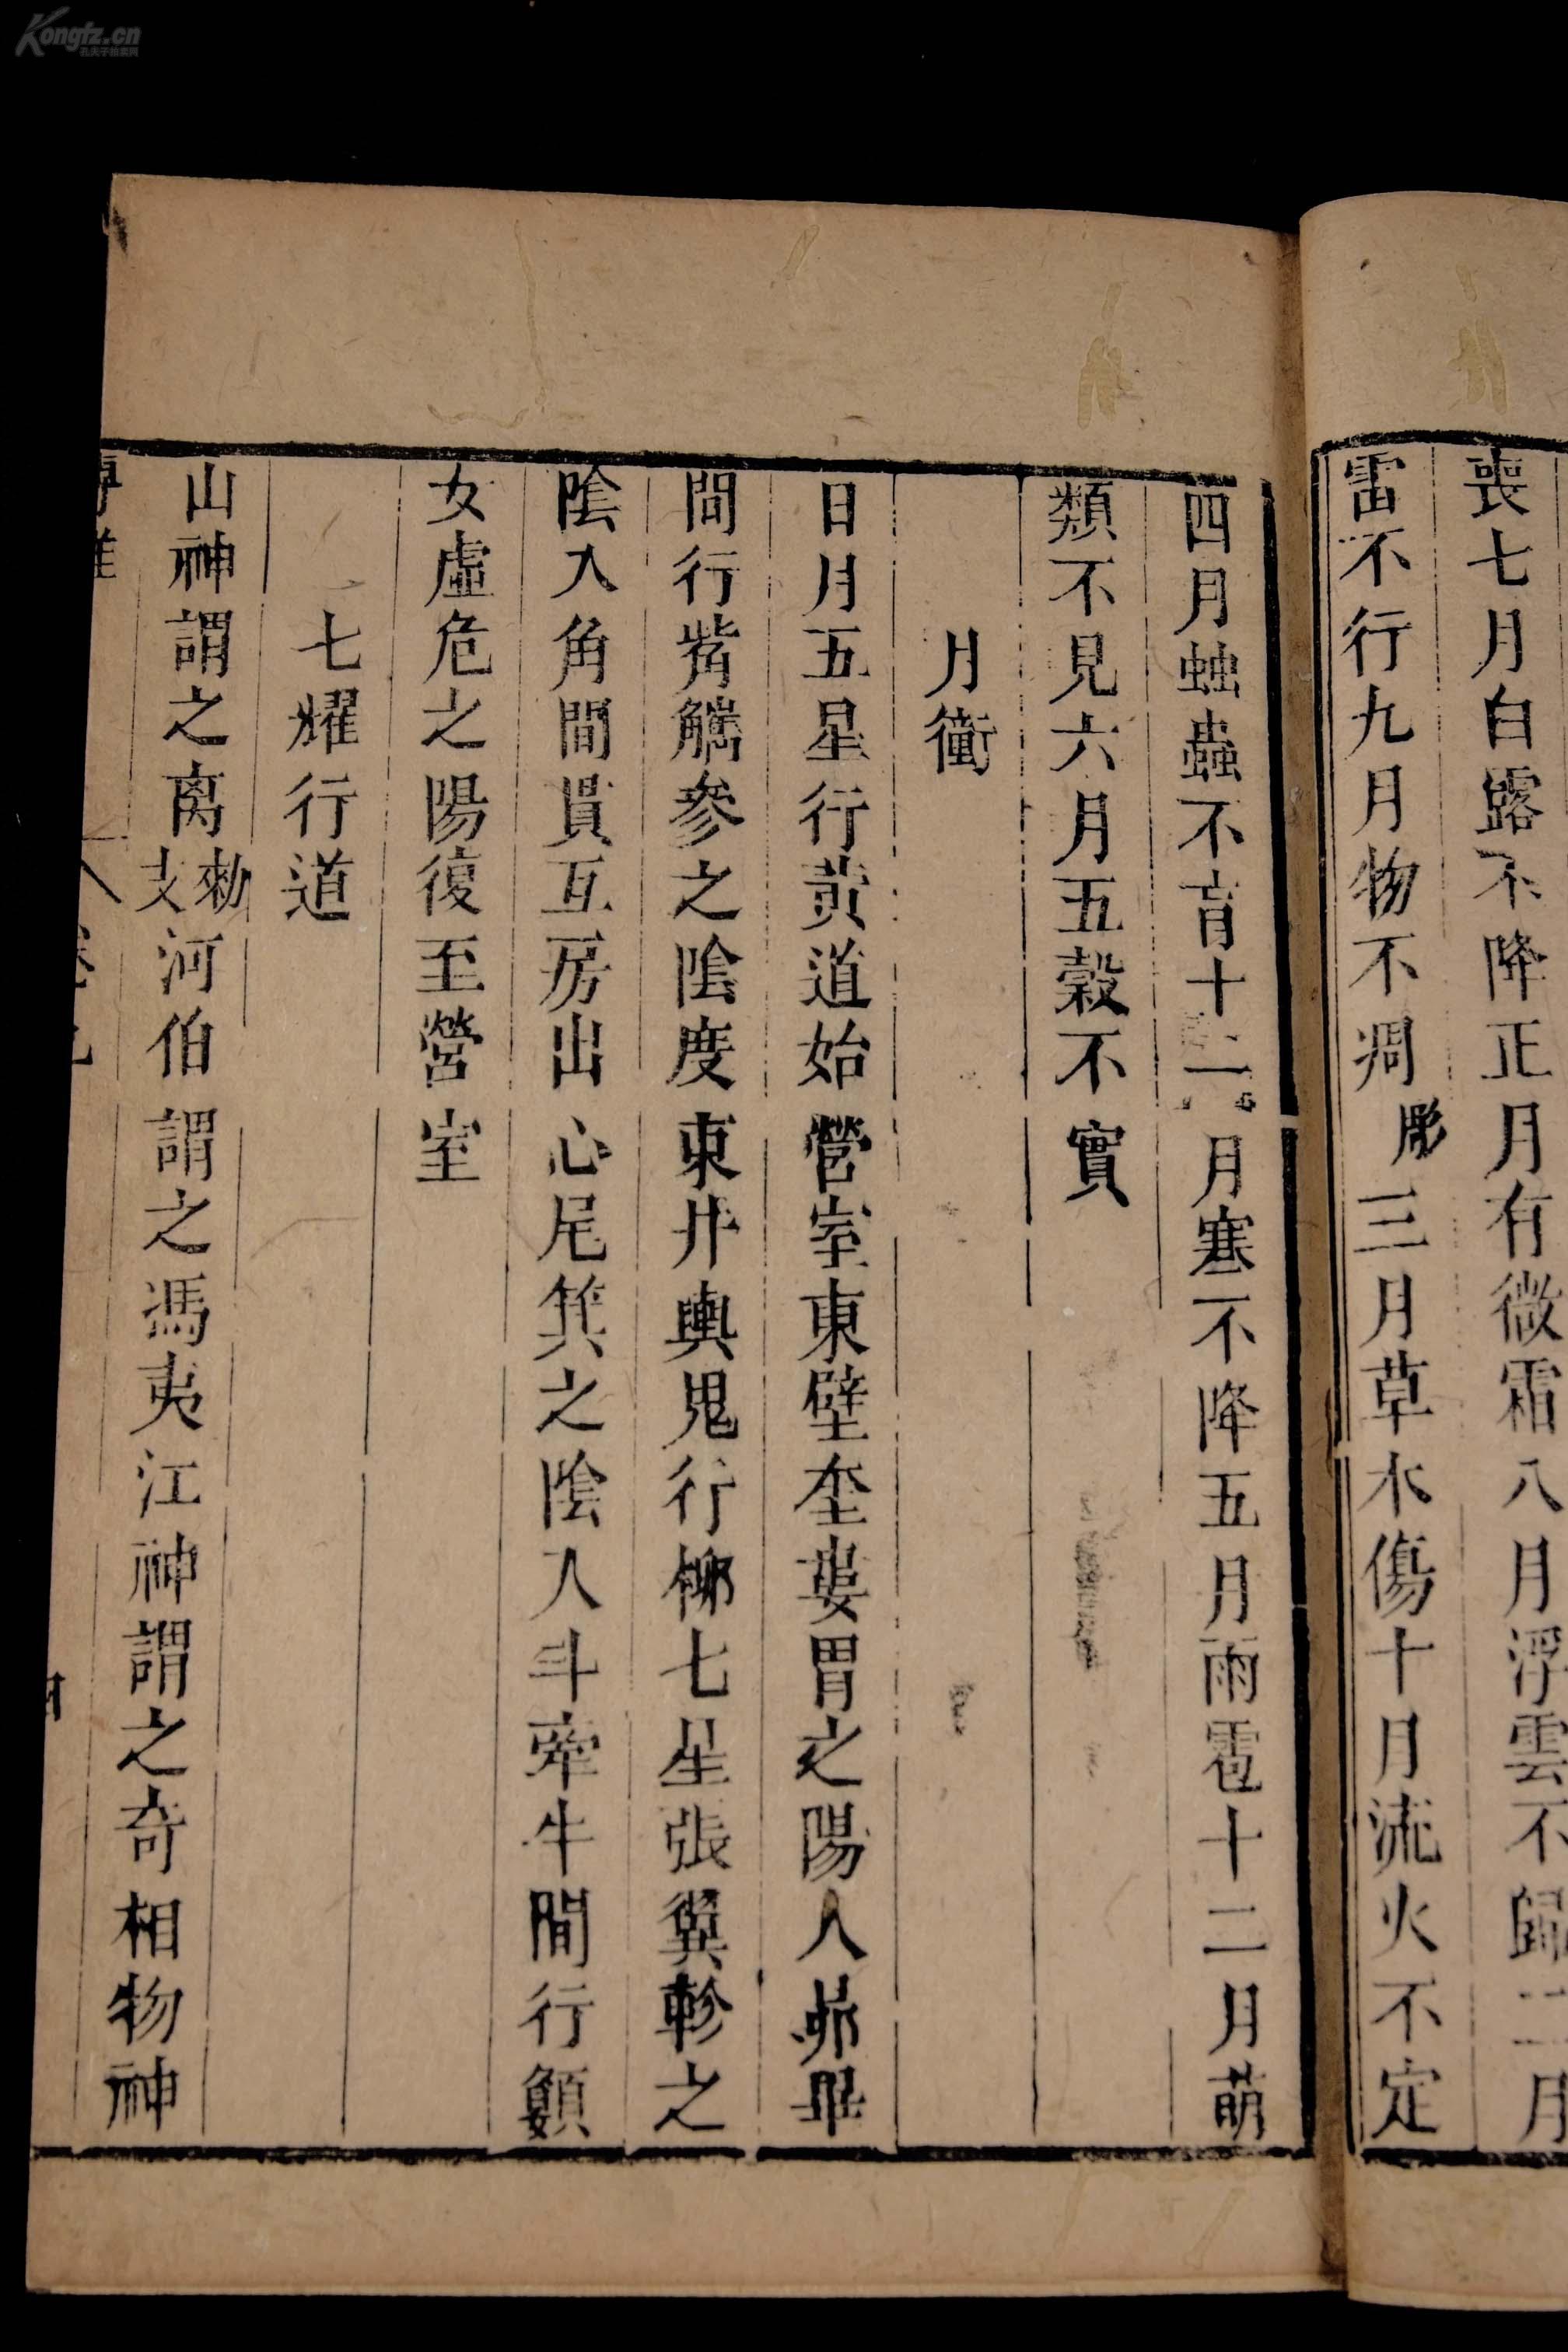 喪七月白露不降正月有微霜八月浮雲不歸二月
雷不行九月物不凋彫三月草木傷十月流火不定
四月蚰蟲不育十二月寒不降五月雨雹十二月萌
類不見六月五穀不實
月衝
日月五星行黄道始營室東壁奎婁胃之陽入昴畢
間行觜觿參之陰度東井輿鬼行柳七星張翼軫之
陰入角間貫互房出心尾箕之陰入斗牽牛間行顛
女虛危之陽復至營室
七耀行道
山神謂之离勑支河伯謂之馮夷江神謂之奇相物神
Kongfz.cn
孔夫子旧书网